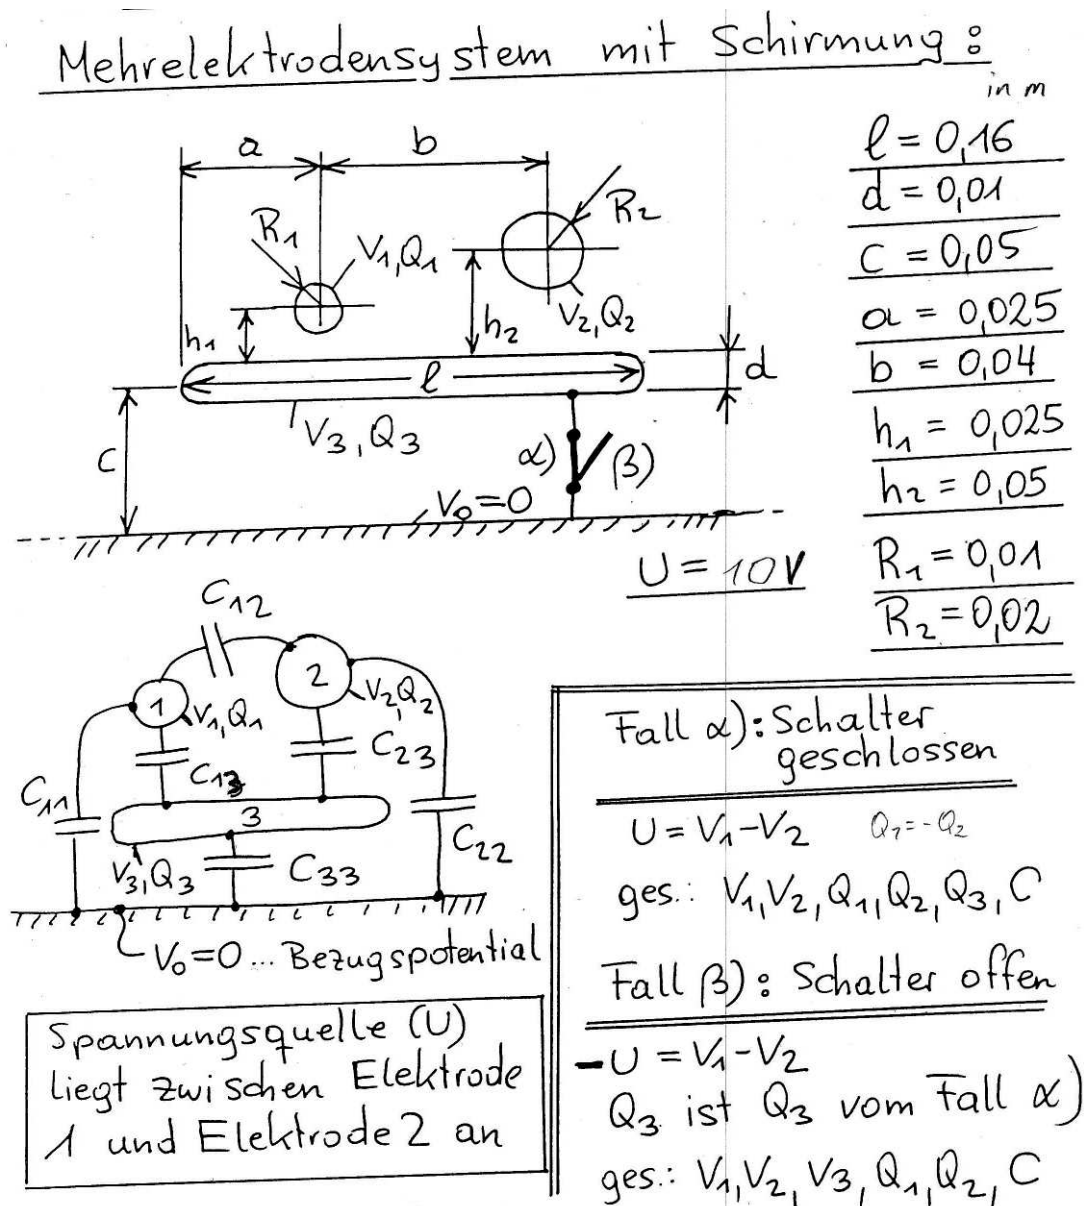 Mehrelektrodensystem mit Schirmung:
in m
l = 0,16
d = 0,01
c = 0,05
a = 0,025
b = 0,04
h₁ = 0,025
h₂ = 0,05
R₁ = 0,01
R₂ = 0,02
a
b
R₁
V₁,Q₁
R₂
V₂,Q₂
h₁
h₂
l
d
V₃,Q₃
c
α)
β)
V₀=0
U = 10V
C₁₂
1
V₁,Q₁
2
V₂,Q₂
C₁₃
C₂₃
C₁₁
3
C₂₂
V₃,Q₃
C₃₃
V₀=0 ... Bezugspotential
Spannungsquelle (U)
liegt zwischen Elektrode
1 und Elektrode 2 an
Fall α): Schalter
geschlossen
U = V₁-V₂ Q₁=-Q₂
ges.: V₁,V₂,Q₁,Q₂,Q₃,C
Fall β): Schalter offen
-U = V₁-V₂
Q₃ ist Q₃ vom Fall α)
ges.: V₁,V₂,V₃,Q₁,Q₂,C